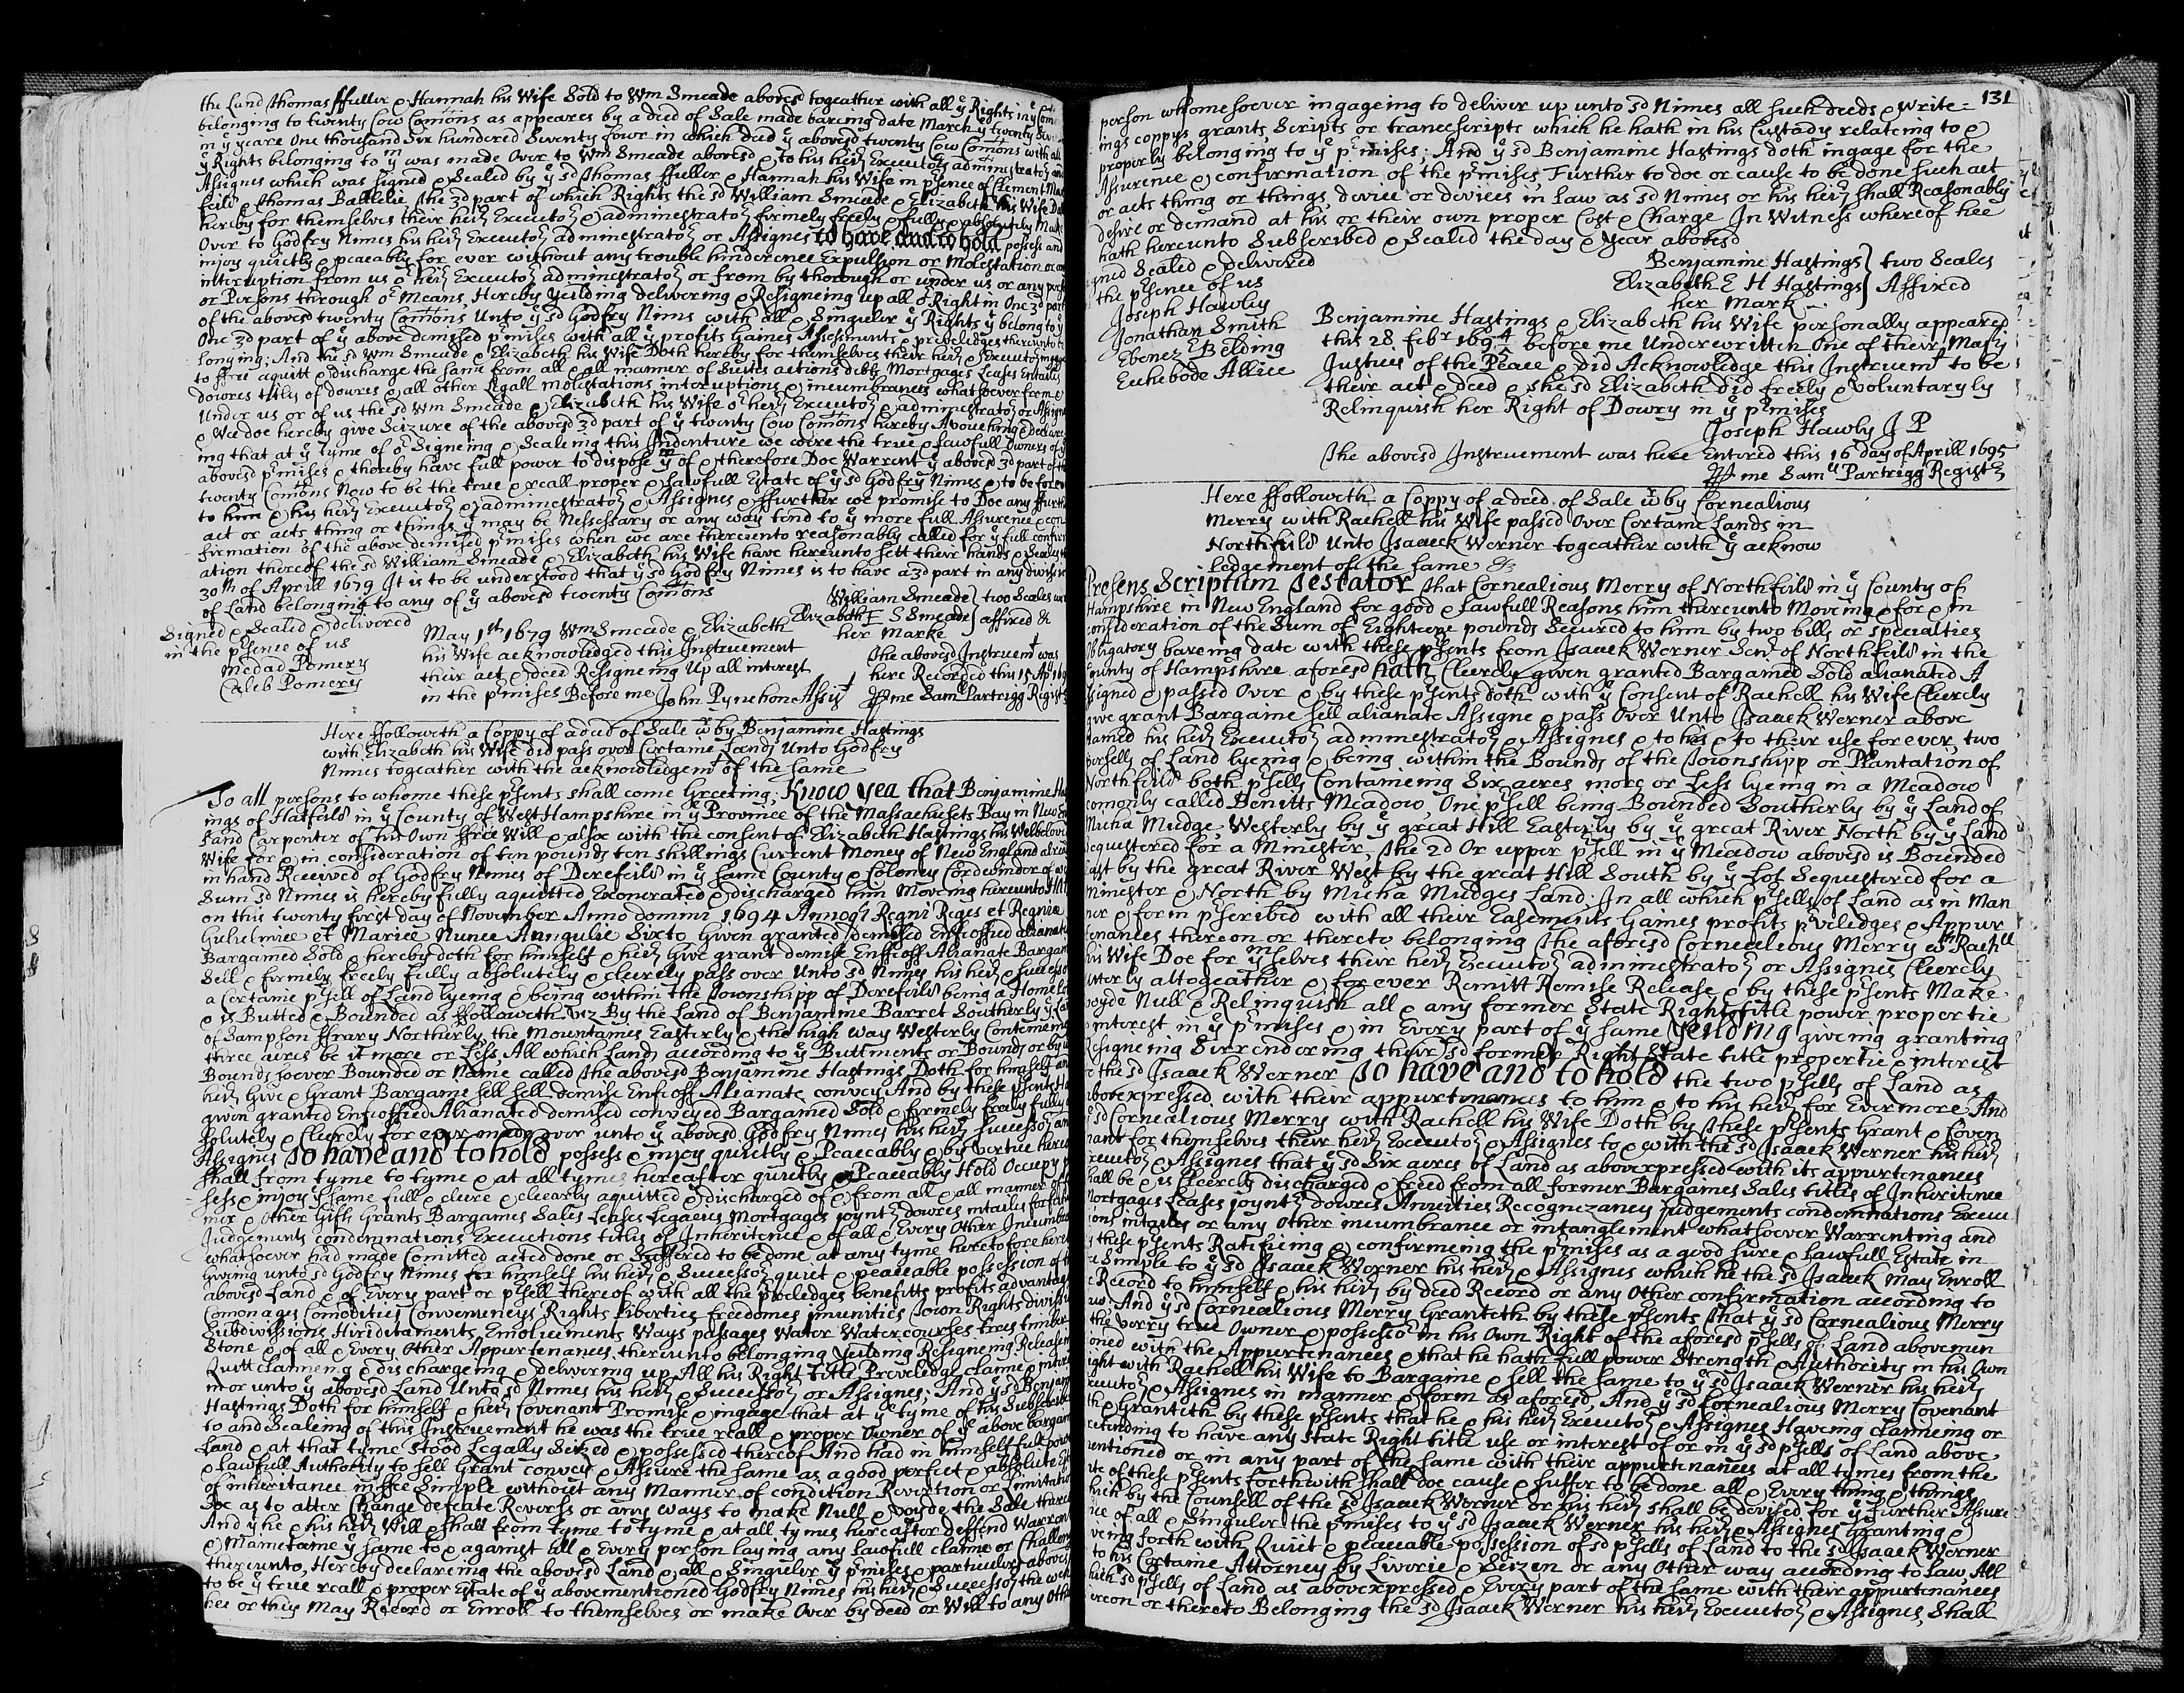 the Land Thomas ffuller & Hannah his Wife Sold to Wm Smeade abovesd togeather with all ye Rights in ye Com
belonging to twenty Cow Comōns as appeares by a deed of Sale made baring date March ye twenty
in ye yeare One thousand Six hundred Seventy fowr in which Deed ye abovesd twenty Cow Comōns with all
ye Rights belonging to ym was made Over to Wm Smeade abovesd & to his heirs Executors administrators and
Assignes which was signed & Sealed by ye sd Thomas ffuller & Hannah his Wife in psence of Clement Mas
feild & Thomas Battelie, The 3d part of which Rights the sd William Smeade & Elizabeth his Wife Do
hereby for themselves their heirs Executors & administrators firmely freely & fully & absolutely Make
Over to Godfry Nimes his heirs Executors administrators or Assignes to have and to hold possess and
injoy quietly & pceably for ever without any trouble hinderence Expulsion or Molestation or any
interuption from us or heirs Executors administrators or from by thorough or under us or any person
or Persons through or Means, Hereby Yeilding delivering & Resigneing up all or Right in One 3d part
of the abovesd twenty Comōns Unto ye sd Godfry Nims with all & Singuler ye Rights yt belong to ye
One 3d part of ye above demised pmises with all ye profits Gaines Assesments & preveledges thereunto be
longing: And the sd Wm Smeade & Elizabeth his Wife Doth hereby for themselves their heirs & Executors ingage
to ffree aquitt & discharge the same from all & all manner of Suites actions debts Mortgages Leases Entailes
Dowres titles of dowres & all other Legall molestations interuptions & incumbrances whatsoever from &
Under us or of us the sd Wm Smeade & Elizabeth his Wife or heirs Executors & administrators or Assignes
& Wee doe hereby give Seizure of the abovesd 3d part of ye twenty Cow Comōns hereby Avouching & declare
ing that at ye tyme of or Signeing & Sealing this Indenture we were the true & Lawfull Owners of ye
abovesd pmises & thereby have full power to dispose ym of & therefore Doe Warrent ye abovesd 3d part of the
twenty Comōns Now to be the true & reall proper & Lawfull Estate of ye sd Godfry Nimes & to be forever
to him & his heirs Executors & administrators & Assignes & ffurther we promise to Doe any ffurther
act or acts thing or things yt may be Nessessary or any way tend to ye more full Assurence & con
firmation of the above demised pmises when we are thereunto reasonably called for ye full confirm
ation thereof the sd William Smeade & Elizabeth his Wife have hereunto sett their hands & Seales
30th of Aprill 1679 It is to be understood that ye sd Godfry Nimes is to have a 3d part in any divission
of Land belonging to any of ye abovesd twenty Comōns
William Smeade } two Seales were
Elizabeth E S Smeade } affixed &
her Marke
Signed & Sealed & delivered
in the psence of us
Medad Pomery
Caleb Pomery
May 1st 1679 Wm Smeade & Elizabeth
his Wife acknowledged this Instruement
their act & deed Resigneing Up all interest
in the pmises Before me John Pynchone Assist
The abovesd Instruemt was
here Recorded this 15 Ap 169
P me Samll Partrigg Registr
Here ffolloweth a Coppy of a deed of Sale wr by Benjamine Hastings
with Elizabeth his Wife did pass over Certaine Lands Unto Godfry
Nimes togeather with the acknowledgemt of the same
To all persons to whome these psents shall come Greeting; Know yea that Benjamine Hast
ings of Hatfeild in ye County of West Hampshire in ye Province of the Massachusets Bay in New Eng
Land Carpenter of his Own ffree Will & alsoe with the consent of Elizabeth Hastings his Welbeloved
Wife for & in consideration of ten pounds ten shillings Current Money of New England already
in hand Received of Godfry Nimes of Derefeild in ye same County & Coloney Cordwinder of wch
Sum sd Nimes is hereby fully aquitted Exonerated & discharged him Moveing hereunto Hath
on this twenty first day of November Anno domini 1694 Annoqe Regni Reges et Regnia
Gulielmiee et Mariee Nunce Anngulie Sixto Given granted demised Enfeoffied alianated
Bargained Sold & hereby doth for himself & heirs Give grant demise Enffeoff Alianate Bargain
Sell & firmely freely fully absolutely & cleerely pass over Unto sd Nimes his heirs & Successors
a Certaine psell of Land lyeing & being within the Townshipp of Derefeild being a Homelott
& is Butted & Bounded as ffolloweth Viz By the Land of Benjamine Barret Southerly ye Land
of Sampson ffrary Northerly, the Mountaines Easterly & the high way Westerly Conteineing
three acres be it more or Less All which Lands according to ye Buttments or Bounds or by wt
Bounds soever Bounded or Name called The abovesd Benjamine Hastings Doth for himself and
heirs Give & Grant Bargaine sell sell demise Enfeoff Alianate convey And by these psents Hath
given granted Enfeoffied Alianated demised conveyed Bargained Sold & firmely freely fully ab
solutely & Cleerely for ever made over unto ye abovesd Godfry Nimes his heirs Successors and
Assignes To have and to hold possess & enjoy quietly & Peaceably & by Vertue hereof
shall from tyme to tyme & at all tymes hereafter quietly & Peaceably Hold Occupy pos
sess & injoy ye same full & cleere & cleearly aquitted & discharged of & from all & all manner of for
mer & Other Gifts Grants Bargaines Sales Leases Legacies Mortgages joynters dowres intailes forfaitures
Judgements condemnations Executions titles of Inheritence & of all & Every Other Incumbrances
whatsoever had made Comitted acted done or Suffered to be done at any tyme heretofore hereby
Giveing unto sd Godfry Nimes for himself his heirs & Successors quiet & peaceable possession of the
abovesd Land & of Every part or psell thereof with all the priveledges benefitts profits advantages
Comonages Comodities Conveniencys Rights Liberties freedomes imunities Town Rights divissions
Subdivissions Hiriditaments, Emoluements Ways passages Water Watercourses trees timber
Stone & of all & Every Other Appurtenances thereunto belonging Yeilding Resigneing Releaseing
Quitt claimeing & dischargeing & delivering up All his Right title Preveledge claime & interest
in or unto ye abovesd Land Unto sd Nimes his heirs & Successors or Assignes; And ye sd Benjamine
Hastings Doth for himself & heirs Covenant Promise & ingage that at ye tyme of his Subscribeing
to and Sealeing of this Instruement he was the true reall & proper Owner of ye above bargained
Land & at that tyme stood Legally Seized & possessed thereof And had in himself full power
& Lawfull Authority to sell Grant convey & Assure the same as a good perfect & absolute Estate
of inheritance in ffee Simple without any Manner of condition Revertion or Limitation
Soe as to alter Change defeate Reverss or any ways to make Null & Voyde the Sale thereof
And yt he & his heirs Will & shall from tyme to tyme & at all tymes hereafter deffend Warrent
& Mainetaine ye same to & against all & Every person laying any lawfull claime or Challenge
thereunto, Hereby declareing the abovesd Land & all & Singuler ye pmises & particulers abovesd
to be ye true reall & proper Estate of ye abovementioned Godfry Nimes his heirs & Successors the which
hee or they May Record or Enroll to themselves or make Over by deed or Will to any Other
131
person whomesoever ingageing to deliver up unto sd Nimes all such deeds & Write=
ings coppys grants Scripts or trancscripts which he hath in his Custady relateing to &
properly belonging to ye pmises; And ye sd Benjamine Hastings doth ingage for the
Assurence & confirmation of the pmises Further to doe or cause to be done such act
or acts thing or things, device or devices in Law as sd Nimes or his heirs shall Reasonably
desire or demand at his or their own proper Cost & Charge In Witness whereof hee
hath hereunto Subscribed & Sealed the day & Year abovesd
Benjamine Hastings } two Seales
Elizabeth E H Hastings } Affixed
her Mark
gned Sealed & delivered
the psence of us
Joseph Hawly
Jonathan Smith
Ebenezr Belding
Euhebode Allice
Benjamine Hastings & Elizabeth his Wife personally appeared
this 28 febr 169 4/5 before me Underwritten One of their Majs
Justices of the Peace & did Acknowledge this Instruemt to be
their act & deed & she sd Elizabeth did freely & voluntaryly
Relinquish her Right of Dowry in ye pmises
Joseph Hawly J P
The abovesd Instruement was here Entered this 16 day of Aprill 1695
P me Samll Partrigg Registr
Here ffolloweth a Coppy of a deed of Sale wr by Cornealious
Merry with Rachell his Wife passed Over Certaine Lands in
Northfeild Unto Isaaek Werner togeather with ye acknow
ledgement of the same &
Presens Scriptum Testator that Cornealious Merry of Northfeild in ye County of
Hampshire in New England for good & Lawfull Reasons him thereunto Moveing & for & in
consideration of the Sum of Eighteene pounds Secured to him by two bills or specialties
Obligatory bareing date with these psents from Isaaek Werner Senr of Northfeild in the
County of Hampshire aforesd hath Cleerely given granted Bargained Sold alianated A
ssigned & passed Over & by these psents doth with ye Consent of Rachell his Wife Cleerely
give grant Bargaine sell alianate Assigne & pass Over Unto Isaaek Werner above
named his heirs Executors administrators & Assignes & to his & to their use forever, two
psells of Land lyeing & being within the Bounds of the Townshipp or Plantation of
Northfeild both psells Containeing Six acres more or Less lyeing in a Meadow
comonly called Benitts Meadow, One psell being Bounded Southerly by ye Land of
Micha Mudge, Westerly by ye great Hill Easterly by ye great River North by ye Land
sequestered for a Minester, The 2d Or upper psell in ye Meadow abovesd is Bounded
East by the great River West by the great Hill South by ye Lot Sequestered for a
Minester & North by Micha Mudges Land: In all which psells of Land as in Man
ner & form pscribed with all their Easements Gaines profits pveledges & Appur
tenances thereon or thereto belonging The aforesd Cornealeious Merry wth Rachll
his Wife Doe for ymselves their heirs Executors administrators or Assignes Cleerely
utterly altogeather & for ever Remitt Remise Release & by these psents Make
voyde Null & Relinquish all & any former State Right title power propertie
interest in ye pmises & in Every part of ye same Yeilding giving granting
Resigneing Surrendering their sd former Right State title propertie & interest
to the sd Isaaek Werner To have and to hold the two psells of Land as
abovexpressed with their appurtenances to him & to his heirs for Evermore And
ye sd Cornealious Merry with Rachell his Wife Doth by these psents Grant & Coven
nant for themselves their heirs Executors & Assignes to & with the sd Isaaek Werner his heirs
Executors & Assignes that ye sd Six acres of Land as abovexpressed with its appurtenances
shall be & is Cleerely discharged & freed from all former Bargaines Sales titles of Inheritence
Mortgages Leases joynters dowres Anuities Recognezancys judgements condemnations Execu
tions intailes or any Other incumbrance or intanglement whatsoever Warrenting and
by these psents Ratifieing & confirmeing the pmises as a good sure & Lawfull Estate in
ee Simple to ye sd Isaaek Werner his heirs & Assignes which he the sd Isaaek May Enroll
& Record to himself & his heirs by deed Record or any Other confirmation according to
Law: And ye sd Cornealious Merry Granteth by these psents that ye sd Cornealious Merry
the verry true Owner & possessor in his Own Right of the aforesd psells of Land abovemen
tioned with the Appurtenances & that he hath full power Strength & Authority in his Own
right with Rachell his Wife to Bargaine & sell the same to ye sd Isaaek Werner his heirs
Executors & Assignes in manner & form as aforesd, And ye sd Cornealious Merry Covenant
th & Granteth by these psents that he & his heirs Executors & Assignes Haveing claimeing or
pretending to have any State Right title use or interest of or in ye sd psells of Land above
mentioned or in any part of the same with their appurtenances at all tymes from the
date of these psents forthwith shall doe cause & suffer to be done all & Every thing & things
which by the Counsell of the sd Isaaek Werner or his heirs shall be devised for ye further Assure
nce of all & Singuler the pmises to ye sd Isaaek Werner his heirs & Assignes Granting &
giveing forth with Quiet & peaceable possession of sd psells of Land to the sd Isaaek Werner
to his Certaine Attorney by Liverie & Seizen or any Other way according to Law, All
which sd psells of Land as abovexpressed & Every part of the same with their appurtenances
thereon or thereto Belonging the sd Isaaek Werner his heirs Executors & Assignes, Shall